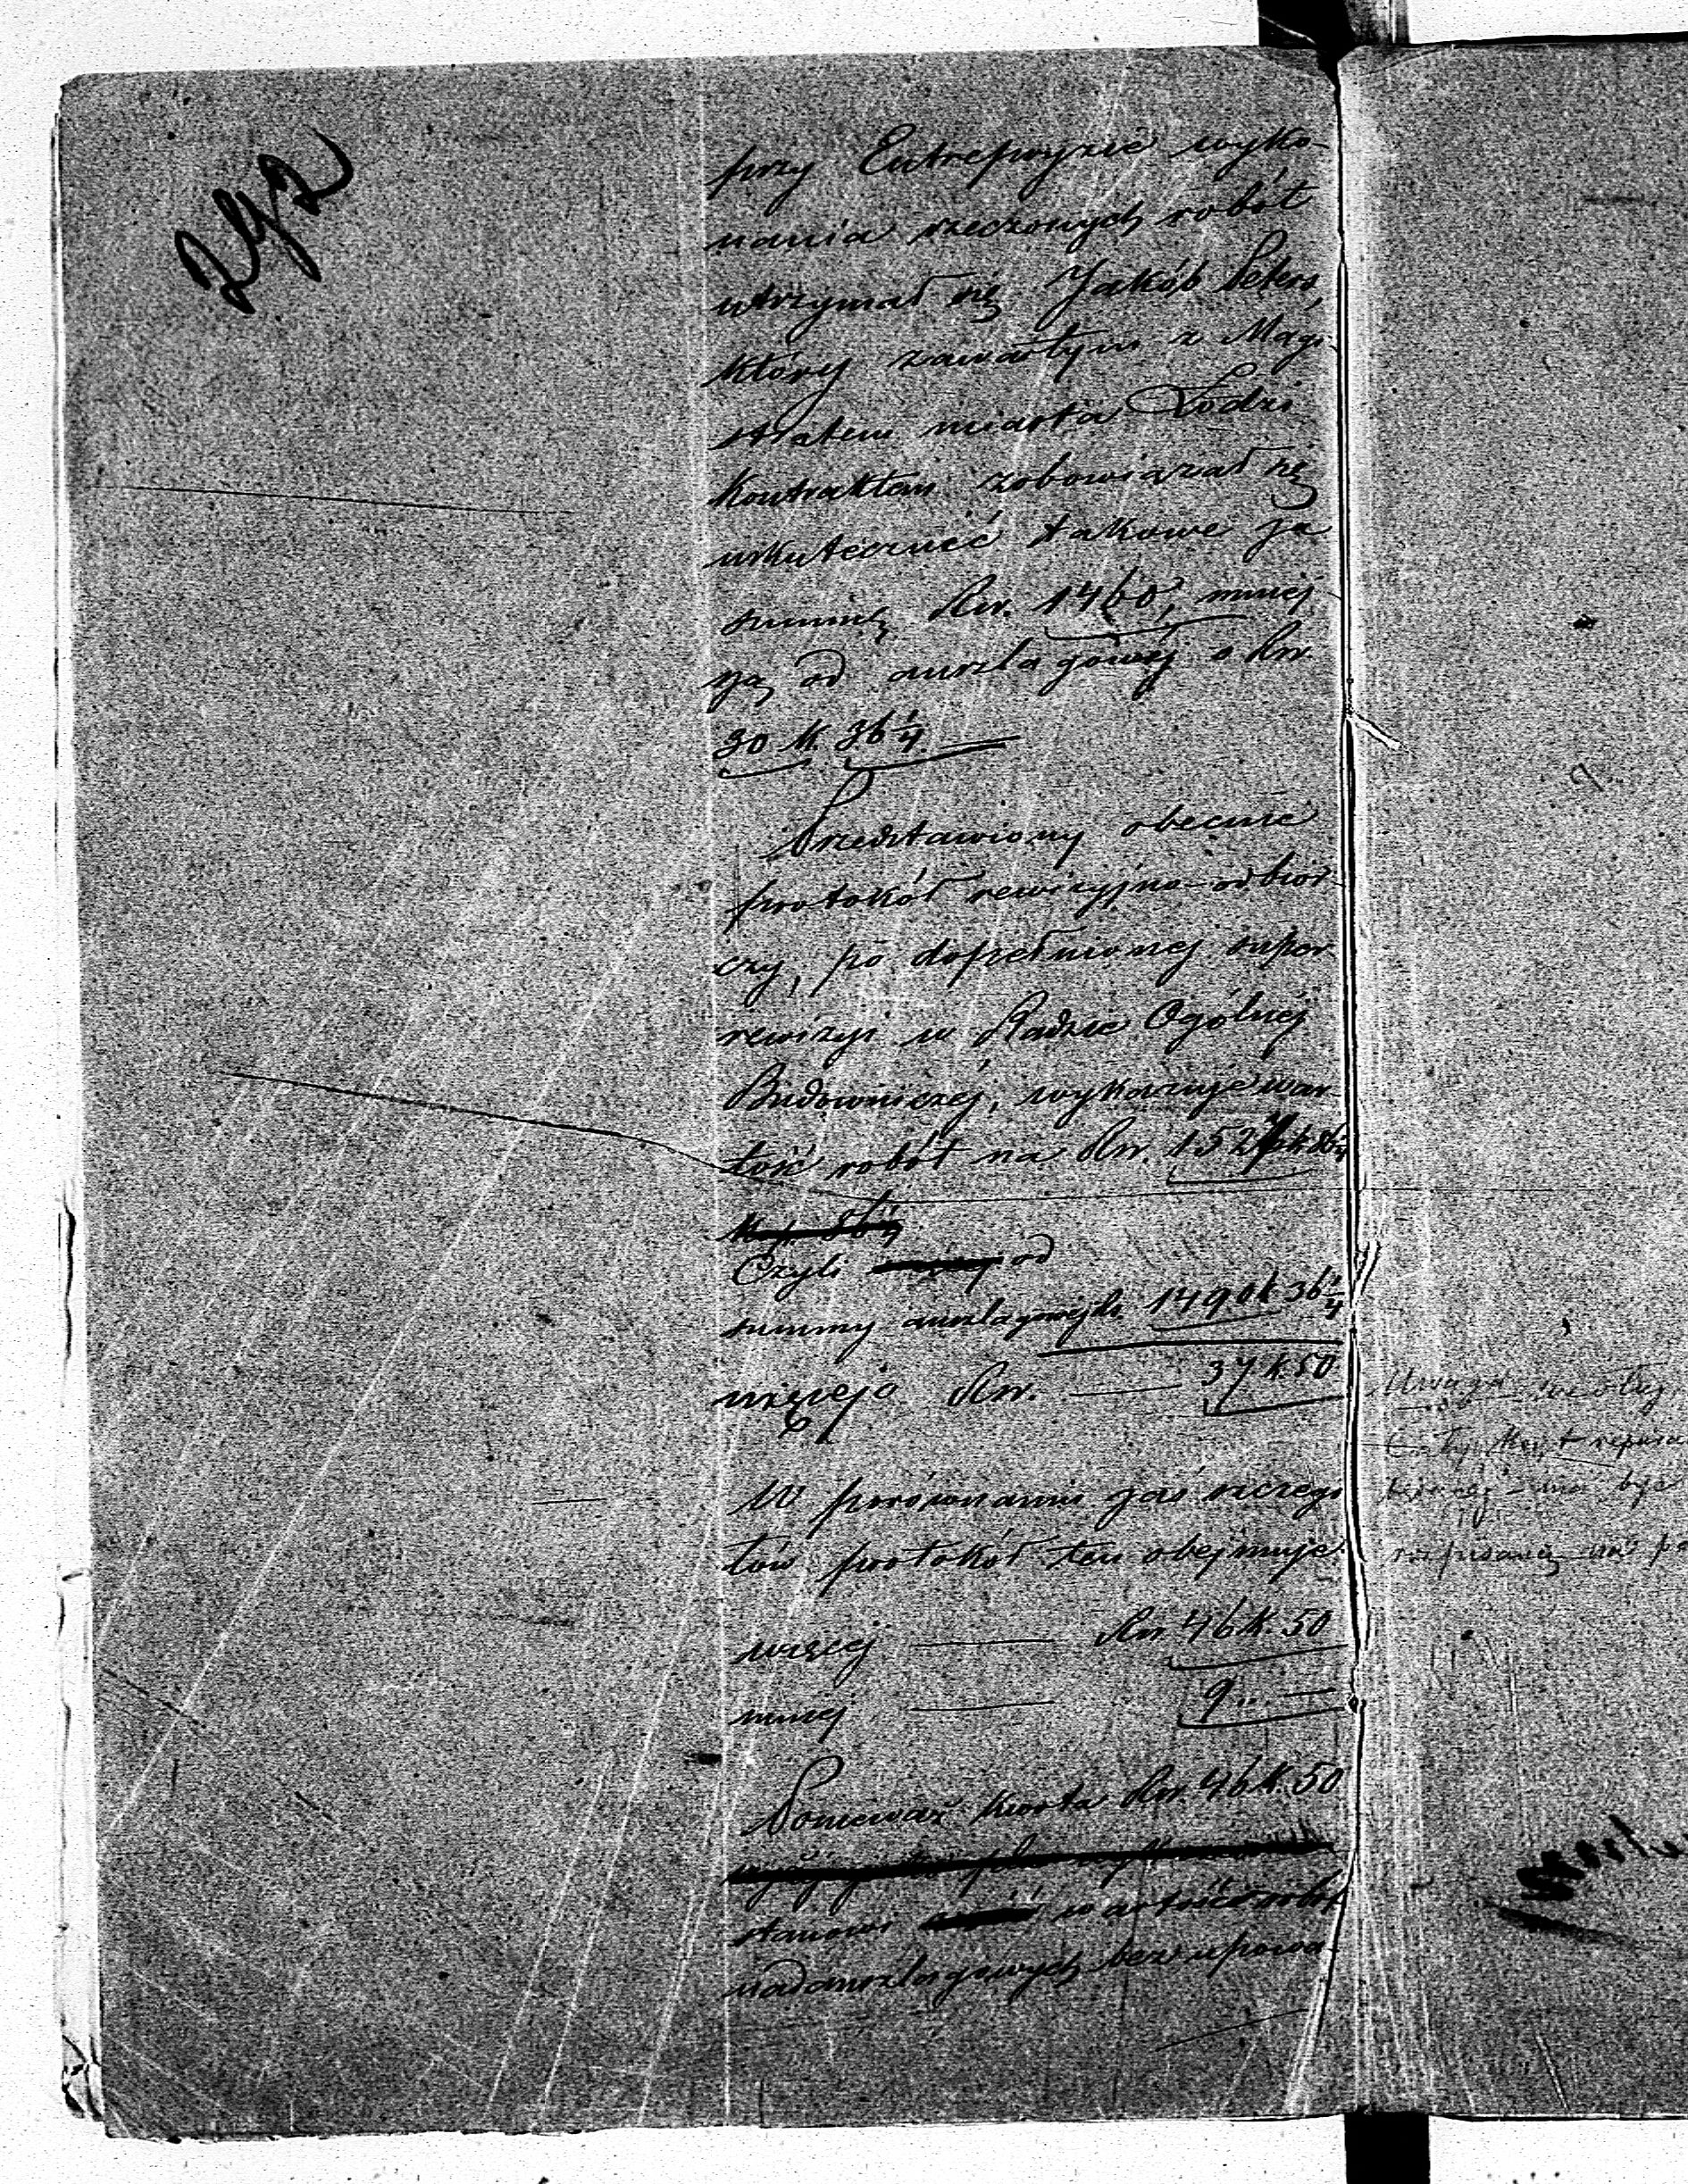 292
przy Entrepryzie wyko-
nania rzeczonych robót
utrzymał się Jakób Peters,
który zawartym z Magi-
stratem miasta Łodzi
kontraktem zobowiązał się
uskutecznić takowe za
summę Rsr. 1460, mniej
szą od anszlagowej o Rsr.
30 k. 36 1/4
Przedstawiony obecnie
protokół rewizyjno-odbior
czy, po dopełnionej super
rewizyi w Radzie Ogólnéj
Budowniczéj, wykazuje war-
tość robót na Rsr. 1527 k 86 1/4
Czyli od
summy anszlagowéj Rs. 1490 k 36 1/4
więcej o Rsr. 37 k. 50
W porównaniu zaś szczegó
łów protokół ten obejmuje:
więcej Rsr. 46 k. 50
mniej 9 „ —
Ponieważ kwota Rsr. 46 k. 50
stanowi wartość robót
nadanszlagowych bez upowa-
Uwaga